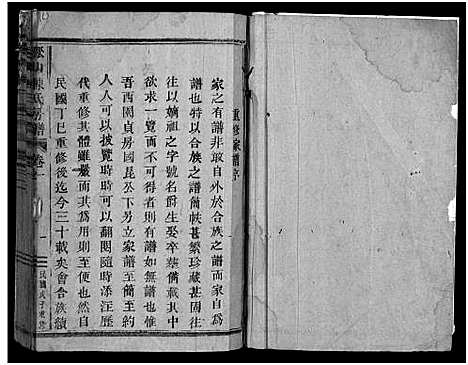 重修家譜序
家之有譜非敢自外於合族之譜而家自為
譜也特以合族之譜簡帙甚繁珍藏甚固往
往以嫡祖之字號名爵生娶卒葬備載其中
欲求一覽而不可得者則有譜如無譜也惟
吾西園貞房國昆丕卞房立家譜至簡至約
人人可以披覽時時可以翻閱隨時添注歷
代重修其體雖嚴而其為用則至便也然自
民國丁巳重修後迄今三十載矣會合族續
山陳氏房譜 卷一
一
民國戊子重修